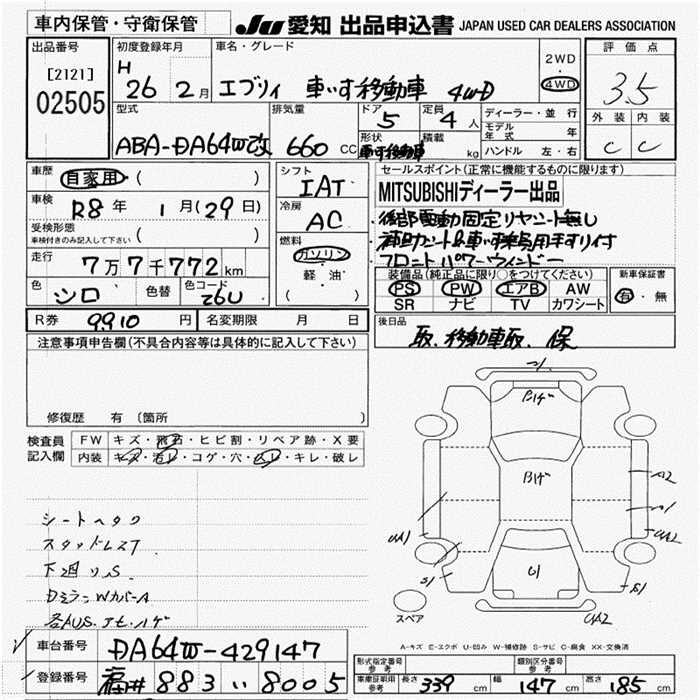 車内保管・守衛保管
JU 愛知 出品申込書 JAPAN USED CAR DEALERS ASSOCIATION
出品番号
[2121]
02505
初度登録年月
H 26 2月
車名・グレード
エブリィ 車いす移動車 4WD
2WD
4WD
評価点
3.5
外装 内装
C C
型式
ABA-DA64W改
排気量
660 CC
ドア
5
定員
4人
形状
車いす移動車
積載
kg
ディーラー・並行
モデル年式 年
ハンドル 左・右
車歴
自家用 ( )
車検
R8年 1月(29日)
受検形態
車検付きのみ記入して下さい ( )
走行
7万7千772km
色
シロ
色替
色コード
26U
シフト
IAT
冷房
AC
燃料
ガソリン
軽・油
( )
セールスポイント(正常に機能するものに限ります)
MITSUBISHIディーラー出品
・後部電動固定リヤシート無し
フロントパワーウィンドー
装備品(純正品に限り○をつけてください)
PS PW エアB AW
SR ナビ TV カワシート
新車保証書
有・無
R券 9910円
名変期限 月 日
後日品
取、移動車取、保
注意事項申告欄(不具合内容等は具体的に記入して下さい)
修復歴 有 〔箇所 〕
検査員記入欄
FW キズ・飛石・ヒビ割・リペア跡・X要
内装 キズ・汚レ・コゲ・穴・ムレ・キレ・破レ
シートヘタク
スタッドレスT
下廻りS
ロミラーWカバーA
B1ゲ
B1ゲ
U1
A2
UA2
UA1
S1
S1
UA2
スペア
A-キズ E-エクボ U-凹み W-補修跡 S-サビ C-腐食 XX-交換済
車台番号
DA64W-429147
登録番号
福井 883 い 8005
形式指定番号 参考
類別区分番号 参考
車庫証明用 参考
長さ 339cm
幅 147cm
高さ 185cm